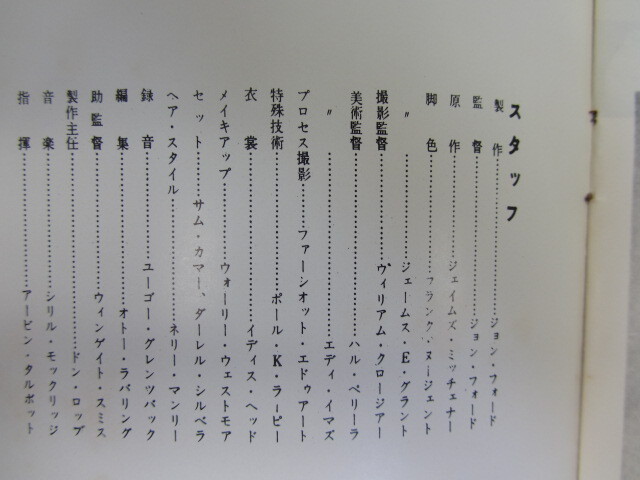 スタッフ
製作……ジョン・フォード
監督……ジョン・フォード
原作……ジェイムズ・ミッチェナー
脚色……フランク・ヌージェント
〃……ジェームス・E・グラント
撮影監督……ヴィリアム・クロージアー
美術監督……ハル・ペリーラ
〃……エディ・イマズ
プロセス撮影……ファーシオット・エドゥアート
特殊技術……ポール・K・ラーピー
衣裳……イディス・ヘッド
メイキアップ……ウォーリー・ウェストモア
セット……サム・カマー、ダーレル・シルベラ
ヘア・スタイル……ネリー・マンリー
録音……ユーゴー・グレンツバック
編集……オトー・ラバリング
助監督……ウィンゲイト・スミス
製作主任……ドン・ロップ
音楽……シリル・モックリッジ
指揮……アービン・タルボット